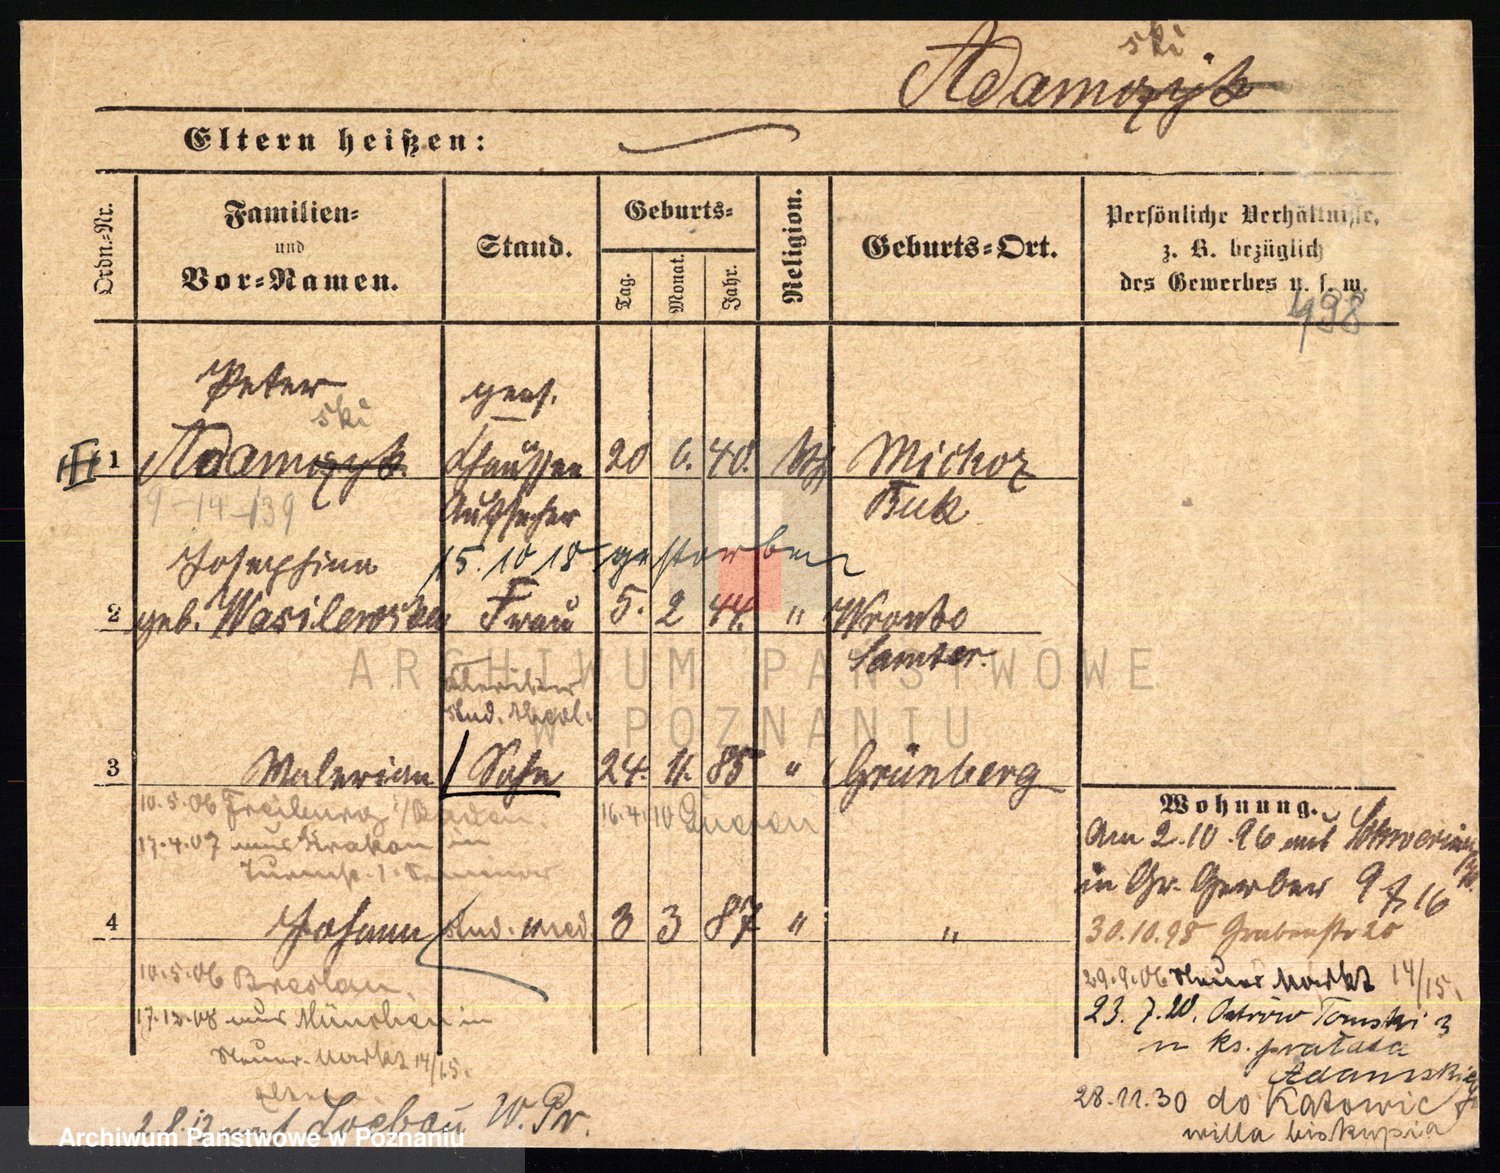 ski
Adamczyk
Eltern heißen:
Ordn.-Nr.
Familien-
und
Vor-Namen.
Stand.
Geburts-
Tag.
Monat.
Jahr.
Religion.
Geburts-Ort.
Persönliche Verhältnisse,
z. B. bezüglich
des Gewerbes u. s. w.
498
Peter
ski
pens.
1 Adamczyk Chaussee 20 6. 40. kth Mickorz
9-14-139 Aufseher Buk
Josephina 15.10.18 gestorben
2 geb. Wasilewska Frau 5. 2 44. " Wronke
Samter.
Kleriker
stud. theol.
3 Walerian Sohn 24. 11. 85 " Grünberg
10.5.06 Freiburg i/Baden. 16.4.10 Gnesen
17.4.07 aus Krakau in
4 Johann stud. med. 3 3 87 " "
10.5.06 Breslau.
17.12.08 aus München in
Neuer Markt 14/15.
28.12 nach Loebau W. Pr.
Wohnung.
Am 2.10.96 aus Schwerin
in Gr. Gerber 9 f 16
30.10.98 Grabenstr 20
29.9.06 Neuer Markt 14/15.
23.7.20. Ostrów Tumski 3
u ks. prałata
Adamskiego
28.11.30 do Katowic
willa biskupia
ARCHIWUM PAŃSTWOWE
W POZNANIU
Archiwum Państwowe w Poznaniu